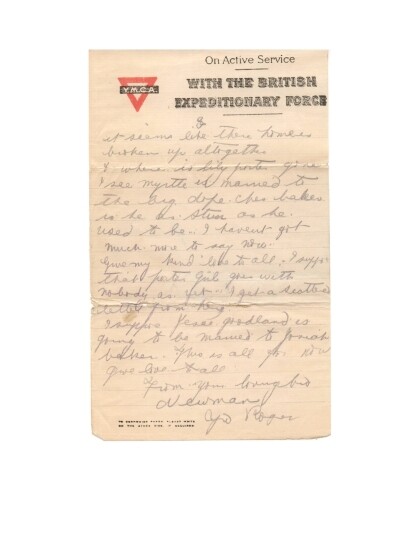 On Active Service
Y.M.C.A.
WITH THE BRITISH
EXPEDITIONARY FORCE
it seems like there home is
broken up altogether
I where is lily porter gone
I see myrtle is married to
the big dope ches baker
is he as as he
used to be.. I havent got
much more to say Now.
Give my kind love to all. I suppose
that porter girl goes with
nobody as yet. I get a
letter from
I suppose goodland is
going to be married to Josiah
baker. this is all for Now
give love to all
From Your loving bro
Newman
Roger